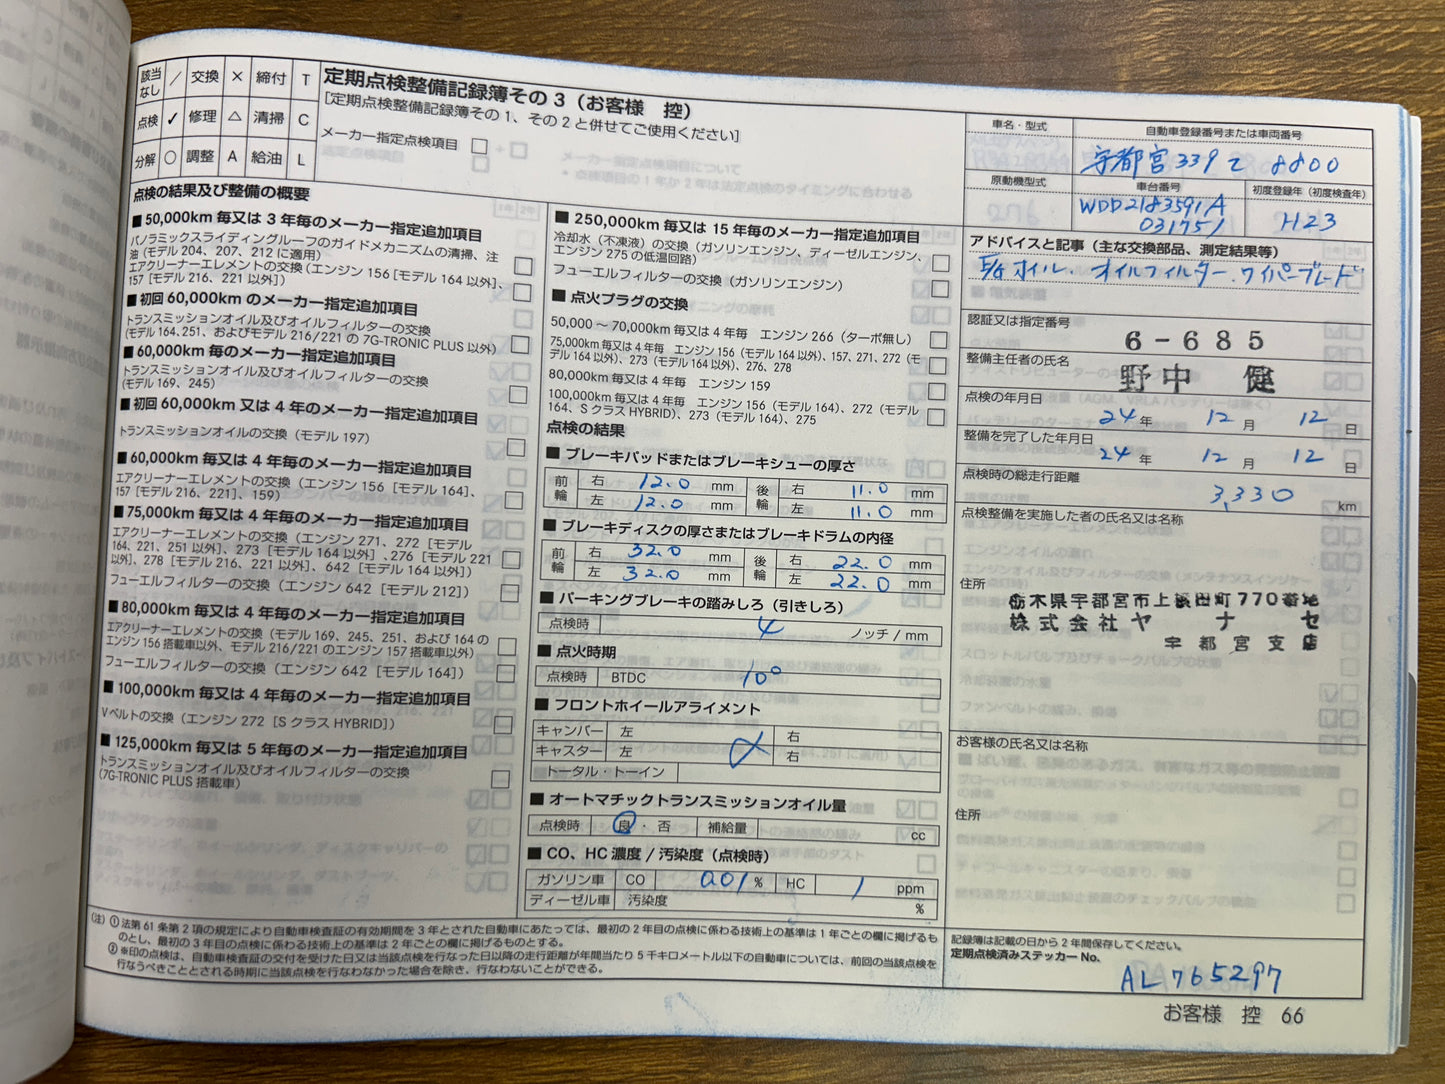 該当なし ／ 交換 × 締付 T
点検 ✓ 修理 △ 清掃 C
分解 ○ 調整 A 給油 L
定期点検整備記録簿その3（お客様　控）
［定期点検整備記録簿その1、その2と併せてご使用ください］
メーカー指定点検項目 □
点検の結果及び整備の概要
■ 50,000km 毎又は 3 年毎のメーカー指定追加項目
パノラミックスライディングルーフのガイドメカニズムの清掃、注
油（モデル 204、207、212 に適用）
エアクリーナーエレメントの交換（エンジン 156［モデル 164 以外］、
157［モデル 216、221 以外］）
■ 初回 60,000km のメーカー指定追加項目
トランスミッションオイル及びオイルフィルターの交換
（モデル 164、251、およびモデル 216/221 の 7G-TRONIC PLUS 以外）
■ 60,000km 毎のメーカー指定追加項目
トランスミッションオイル及びオイルフィルターの交換
（モデル 169、245）
■ 初回 60,000km 又は 4 年のメーカー指定追加項目
トランスミッションオイルの交換（モデル 197）
■ 60,000km 毎又は 4 年毎のメーカー指定追加項目
エアクリーナーエレメントの交換（エンジン 156［モデル 164］、
157［モデル 216、221］、159）
■ 75,000km 毎又は 4 年毎のメーカー指定追加項目
エアクリーナーエレメントの交換（エンジン 271、272［モデル
164、221、251 以外］、273［モデル 164 以外］、276［モデル 221
以外］、278［モデル 216、221 以外］、642［モデル 164 以外］）
フューエルフィルターの交換（エンジン 642［モデル 212］）
■ 80,000km 毎又は 4 年毎のメーカー指定追加項目
エアクリーナーエレメントの交換（モデル 169、245、251、および 164 の
エンジン 156 搭載車以外、モデル 216/221 のエンジン 157 搭載車以外）
フューエルフィルターの交換（エンジン 642［モデル 164］）
■ 100,000km 毎又は 4 年毎のメーカー指定追加項目
V ベルトの交換（エンジン 272［S クラス HYBRID］）
■ 125,000km 毎又は 5 年毎のメーカー指定追加項目
トランスミッションオイル及びオイルフィルターの交換
（7G-TRONIC PLUS 搭載車）
■ 250,000km 毎又は 15 年毎のメーカー指定追加項目
冷却水（不凍液）の交換（ガソリンエンジン、ディーゼルエンジン、
エンジン 275 の低温回路）
フューエルフィルターの交換（ガソリンエンジン）
■ 点火プラグの交換
50,000 ～ 70,000km 毎又は 4 年毎　エンジン 266（ターボ無し）
75,000km 毎又は 4 年毎　エンジン 156（モデル 164 以外）、157、271、272（モ
デル 164 以外）、273（モデル 164 以外）、276、278
80,000km 毎又は 4 年毎　エンジン 159
100,000km 毎又は 4 年毎　エンジン 156（モデル 164）、272（モデル
164、S クラス HYBRID）、273（モデル 164）、275
点検の結果
■ ブレーキパッドまたはブレーキシューの厚さ
前輪 右 12.0 mm 後輪 右 11.0 mm
左 12.0 mm 左 11.0 mm
■ ブレーキディスクの厚さまたはブレーキドラムの内径
前輪 右 32.0 mm 後輪 右 22.0 mm
左 32.0 mm 左 22.0 mm
■ パーキングブレーキの踏みしろ（引きしろ）
点検時 4 ノッチ / mm
■ 点火時期
点検時 BTDC 10°
■ フロントホイールアライメント
キャンバー 左 右
キャスター 左 右
トータル・トーイン
■ オートマチックトランスミッションオイル量
点検時 良 ・ 否 補給量 cc
■ CO、HC 濃度 / 汚染度（点検時）
ガソリン車 CO 0.01 % HC 1 ppm
ディーゼル車 汚染度 %
車名・型式
自動車登録番号または車両番号
宇都宮 339 て 8800
原動機型式
車台番号
初度登録年（初度検査年）
WDD2183591A
031751
H23
アドバイスと記事（主な交換部品、測定結果等）
E/G オイル. オイルフィルター. ワイパーブレード
認証又は指定番号
6-685
整備主任者の氏名
野中　健
点検の年月日
24 年 12 月 12 日
整備を完了した年月日
24 年 12 月 12 日
点検時の総走行距離
3,330 km
点検整備を実施した者の氏名又は名称
住所
栃木県宇都宮市上籠谷町770番地
株式会社ヤナセ
宇都宮支店
お客様の氏名又は名称
住所
（注）① 法第 61 条第 2 項の規定により自動車検査証の有効期間を 3 年とされた自動車にあたっては、最初の 2 年目の点検に係わる技術上の基準は 1 年ごとの欄に掲げるも
のとし、最初の 3 年目の点検に係わる技術上の基準は 2 年ごとの欄に掲げるものとする。
② ※印の点検は、自動車検査証の交付を受けた日又は当該点検を行なった日以降の走行距離が年間当たり 5 千キロメートル以下の自動車については、前回の当該点検を
行なうべきこととされる時期に当該点検を行なわなかった場合を除き、行なわないことができる。
記録簿は記載の日から 2 年間保存してください。
定期点検済みステッカー No.
AL765297
お客様　控　66